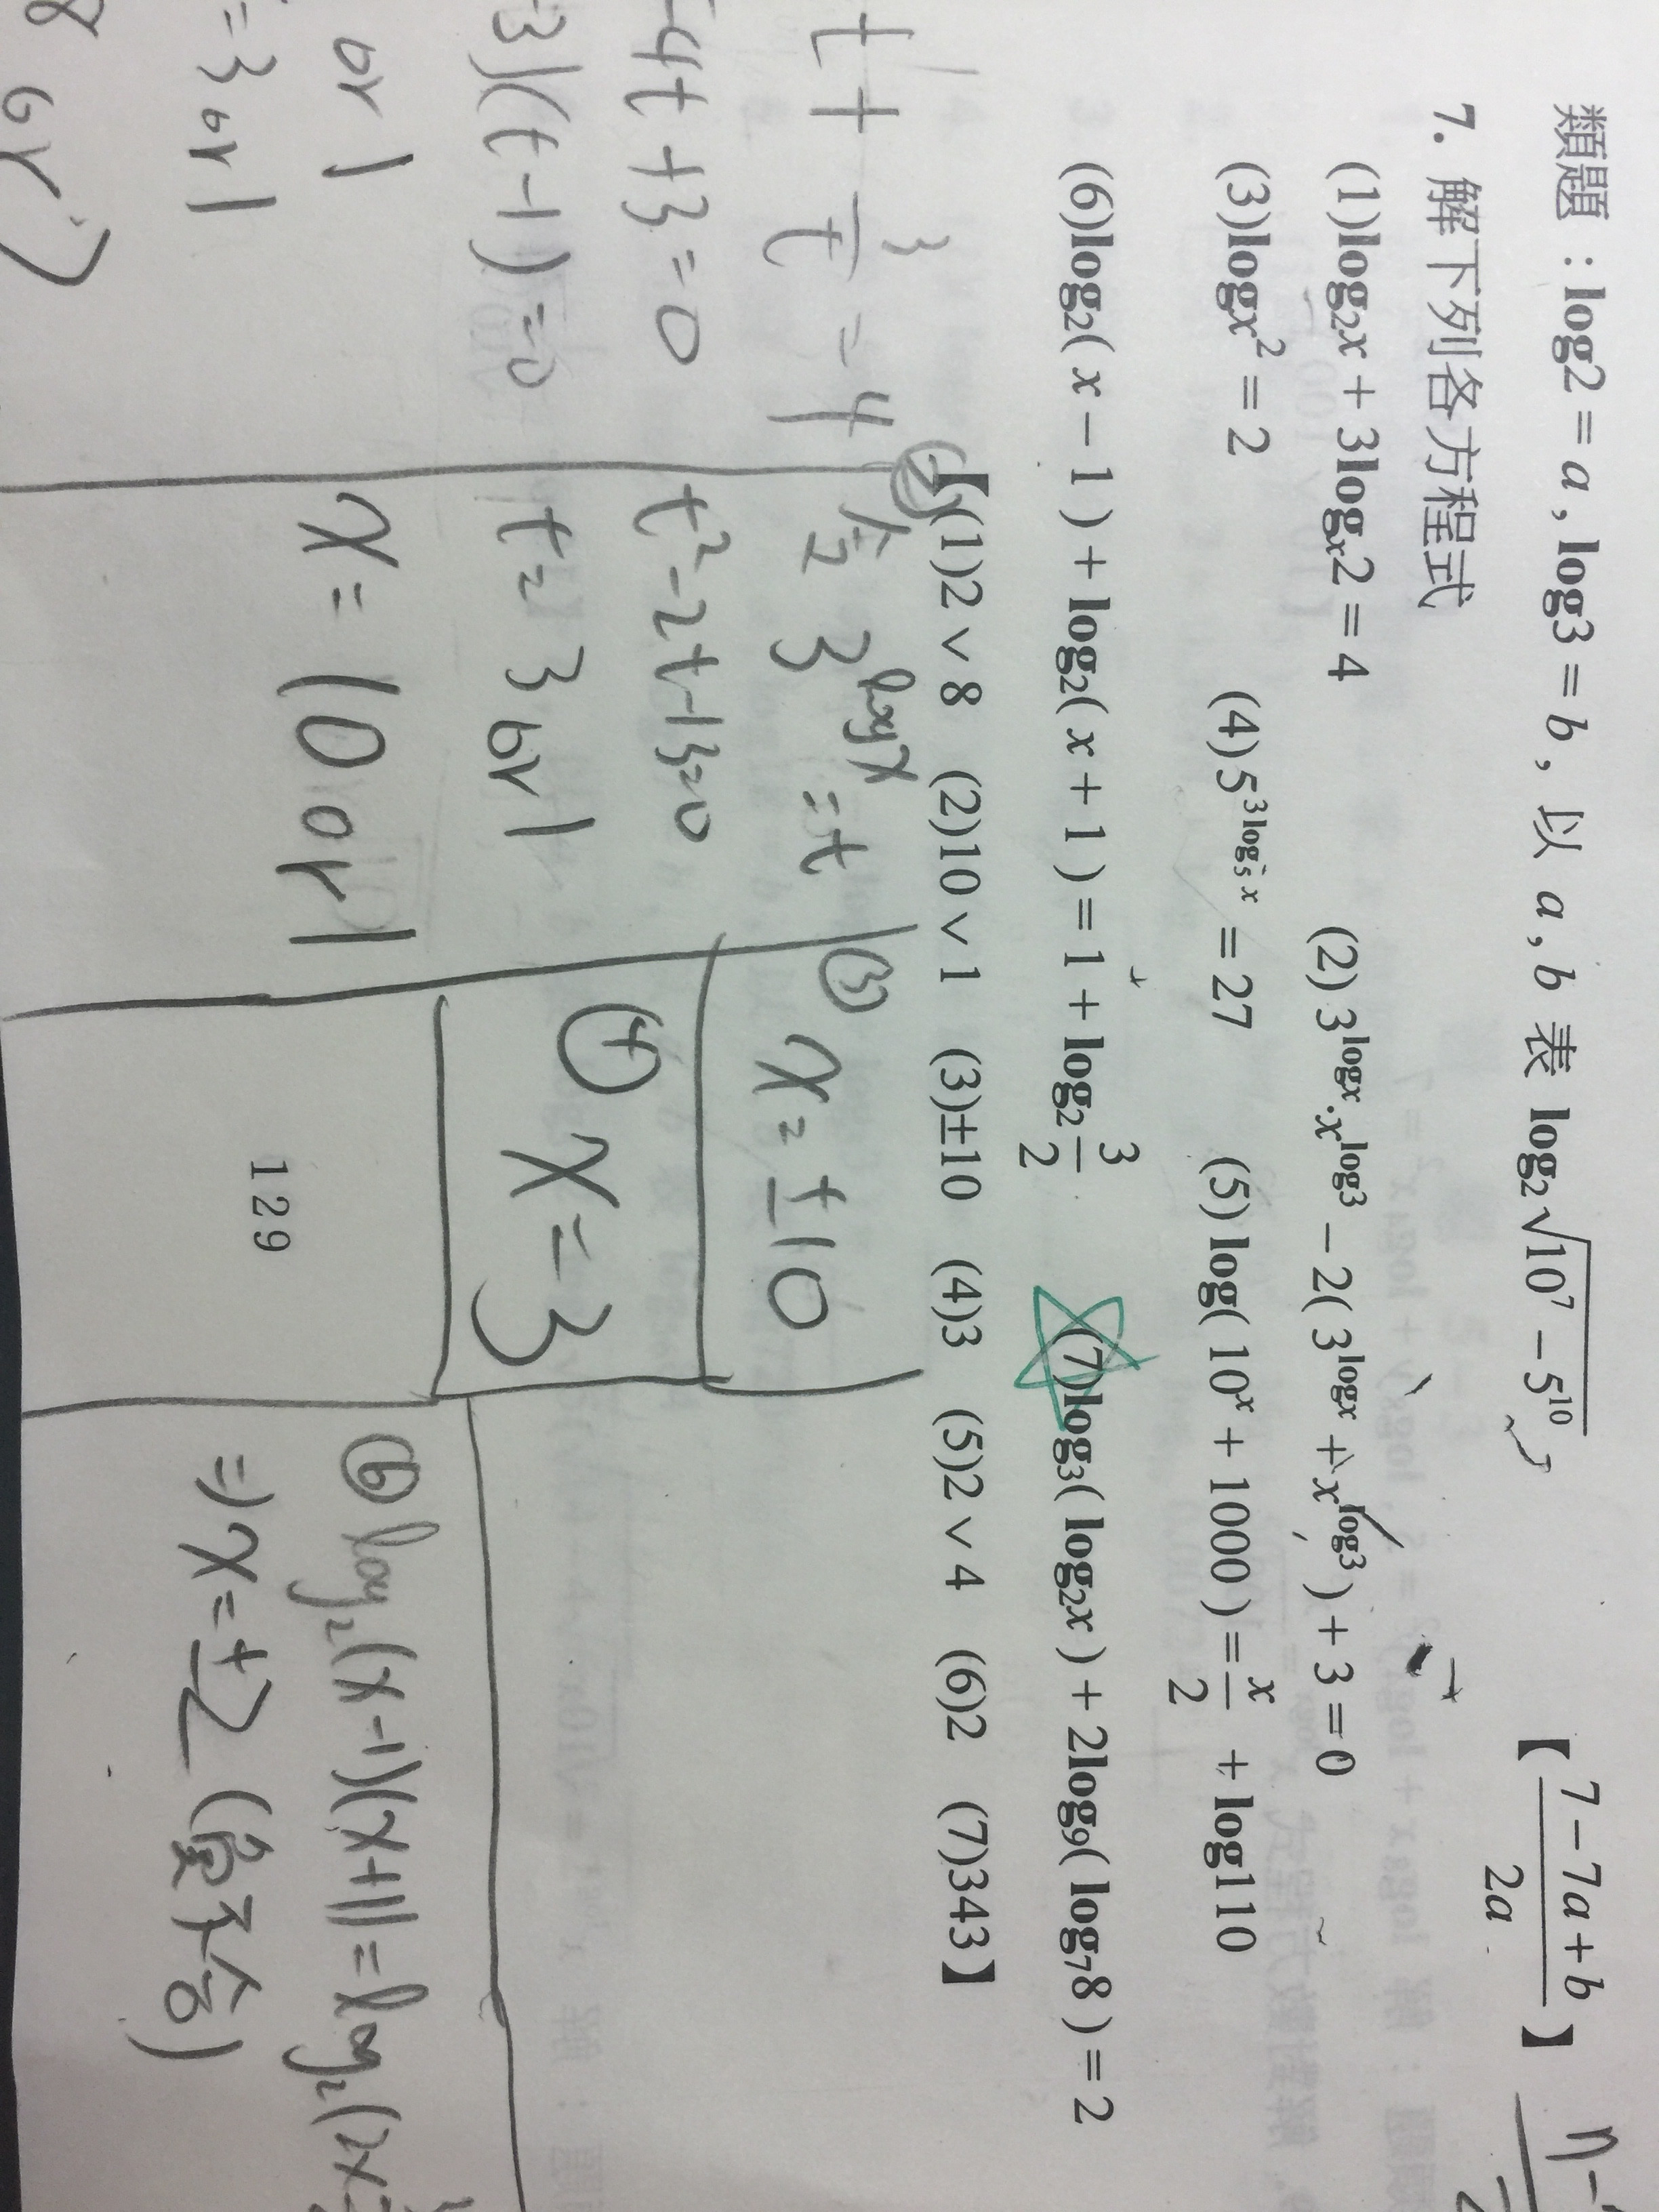 類題：log2 = a , log3 = b , 以 a , b 表 log₂√(10⁷ − 5¹⁰) 【(7 − 7a + b)/2a】
7. 解下列各方程式
(1)log₂x + 3logₓ2 = 4 (2) 3^(logx)·x^(log3) − 2( 3^(logx) + x^(log3) ) + 3 = 0
(3)logx² = 2 (4) 5^(3log₅x) = 27 (5) log( 10^x + 1000 ) = x/2 + log110
(6)log₂( x − 1 ) + log₂( x + 1 ) = 1 + log₂ 3/2 (7)log₃( log₂x ) + 2log₉( log₇8 ) = 2
【(1)2 ∨ 8 (2)10 ∨ 1 (3)±10 (4)3 (5)2 ∨ 4 (6)2 (7)343】
t + 3/t = 4
-4t + 3 = 0
-3)(t-1) = 0
or 1
= 3 or 1
8 or 2
②
令 3^(logx) = t
t² - 2t - 1
t = 3 or 1
x = 10 or 1
③ x = ±10
④ x = 3
⑥ log₂(x-1)(x+1) = log₂(2x
⇒ x = ±2 (負不合)
129